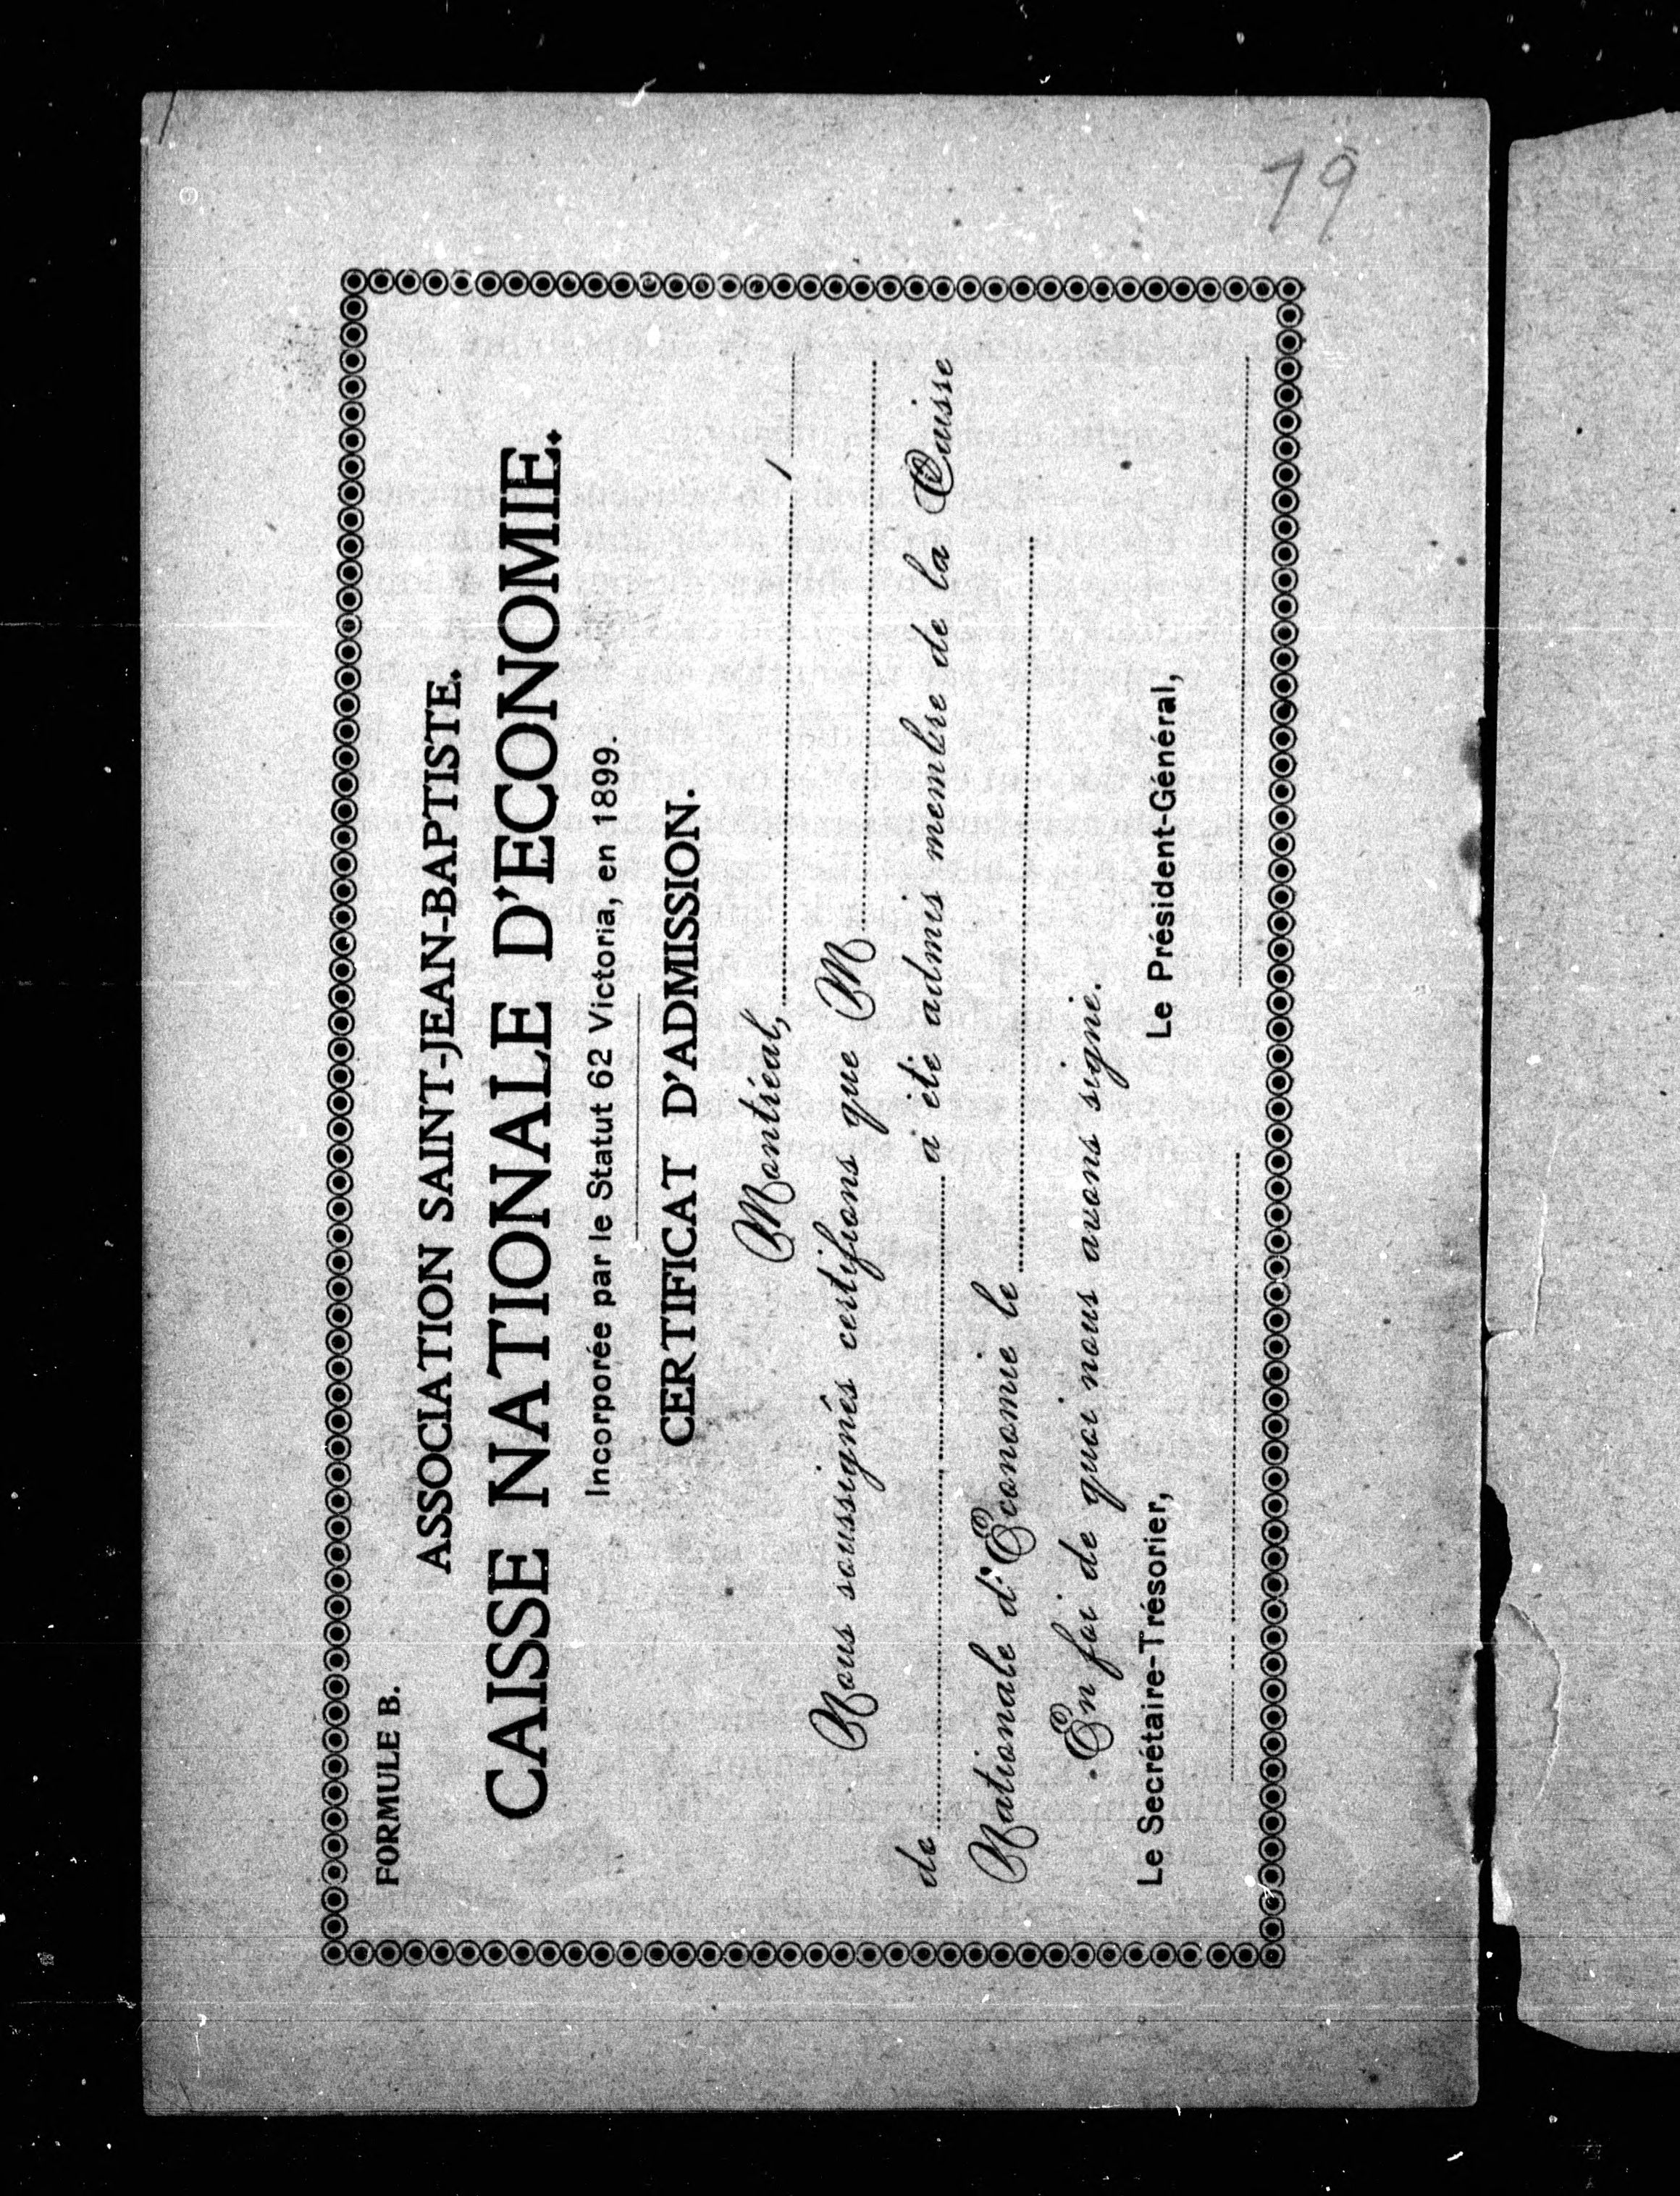 FORMULE B.
ASSOCIATION SAINT-JEAN-BAPTISTE.
CAISSE NATIONALE D'ECONOMIE.
Incorporée par le Statut 62 Victoria, en 1899.
CERTIFICAT D'ADMISSION.
Montréal, ........................ 1 ............
Nous soussignés certifions que M ........................
de ........................ a été admis membre de la Caisse
Nationale d'Economie le ........................
En foi de quoi nous avons signé.
Le Secrétaire-Trésorier, Le Président-Général,
79